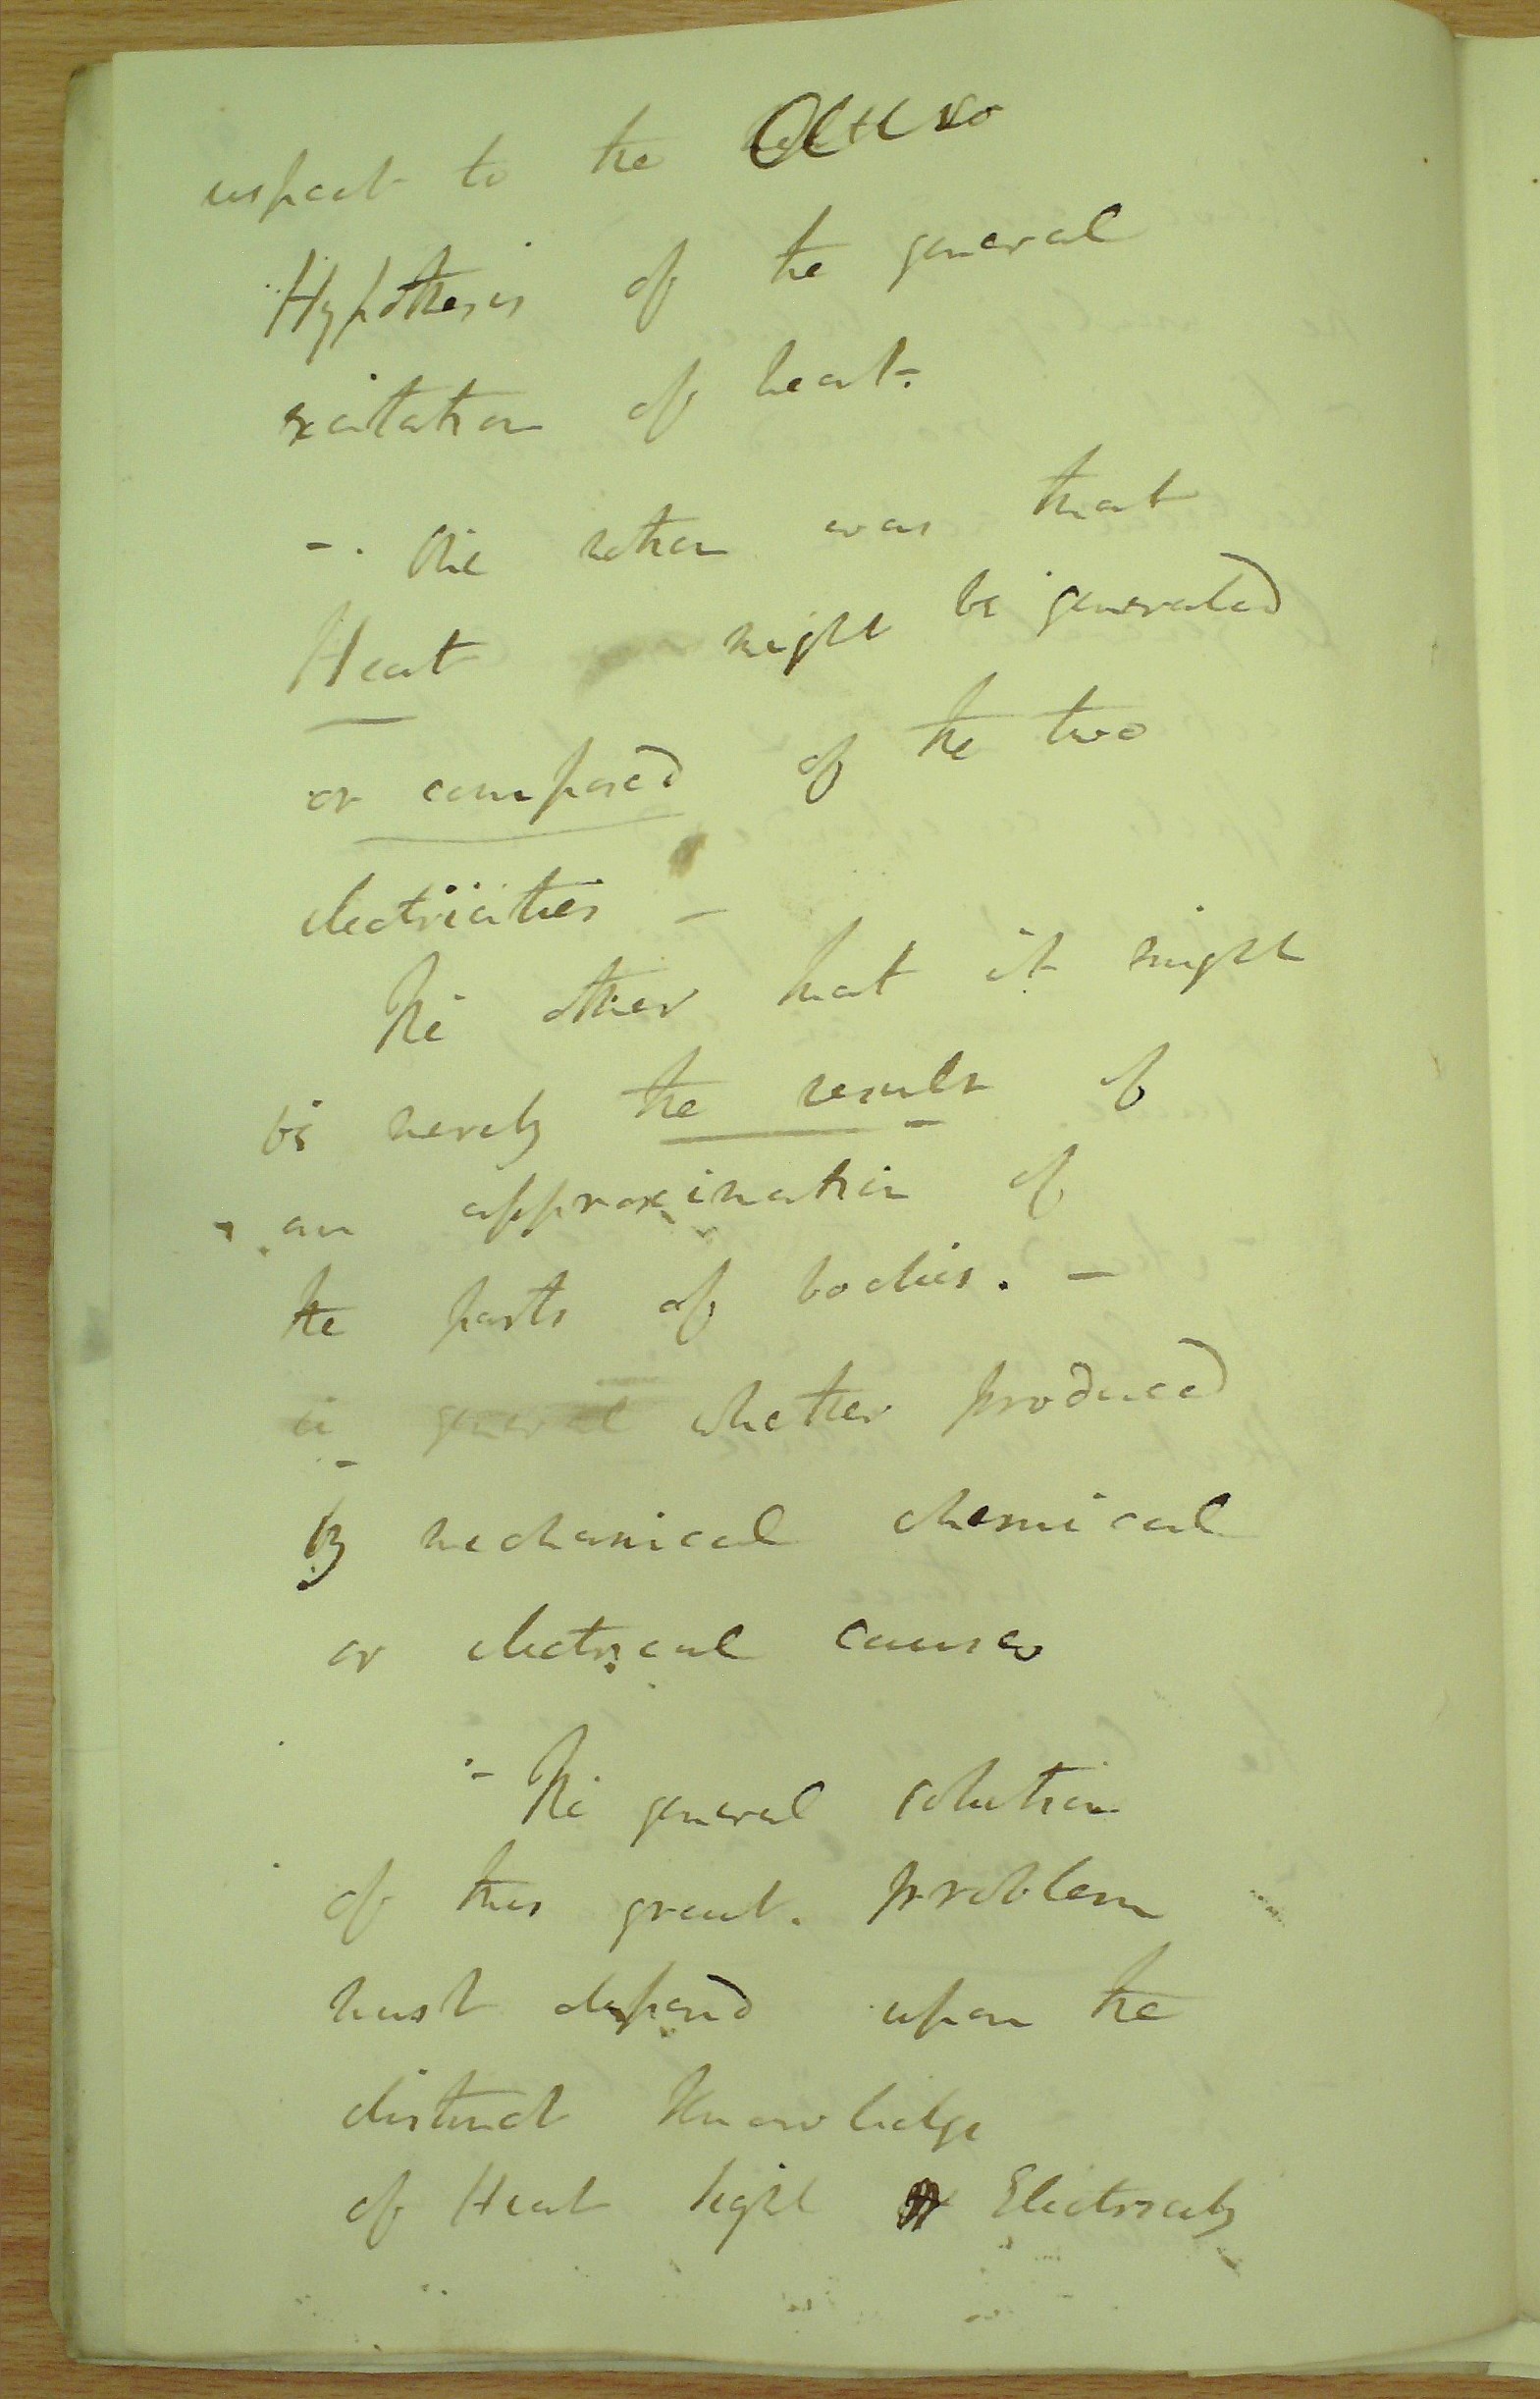 respect to the cause
Hypothesis of the general
excitation of heat.
-. One notion was that
Heat might be generated
or composed of the two
electricities -
The other that it might
be merely the result of
an approximation of
the parts of bodies. -
in general whether produced
by mechanical chemical
or electrical causes
- The general solution
of this great. problem
must depend upon the
distinct knowledge
of Heat light Electricity